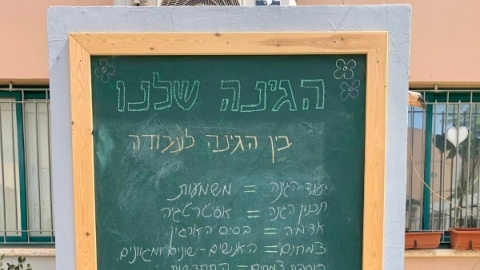 הגינה שלנו
בין הגינה לעבודה
יעוד הגינה = משמעות
תכנון הגינה = אסטרטגיה
אדמה = בסיס הארגון
צמחים = האנשים - שונים ומגוונים